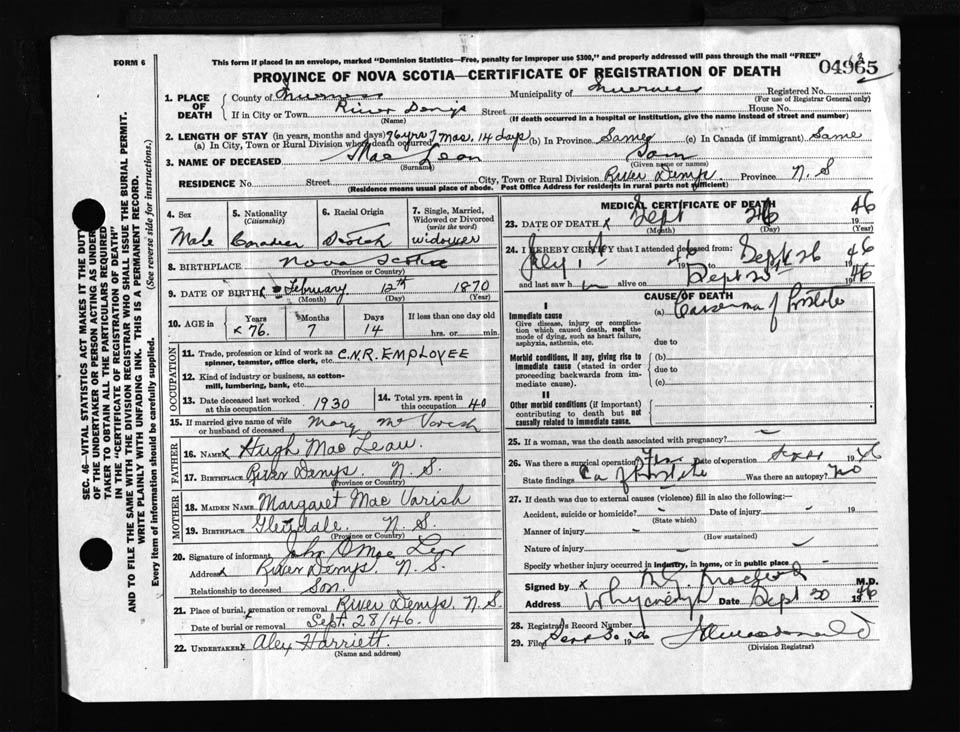 FORM 6
This form if placed in an envelope, marked "Dominion Statistics—Free, penalty for improper use $300," and properly addressed will pass through the mail "FREE"
PROVINCE OF NOVA SCOTIA—CERTIFICATE OF REGISTRATION OF DEATH
04965
1. PLACE OF DEATH County of Inverness Municipality of Inverness Registered No. (For use of Registrar General only)
If in City or Town River Denys Street House No.
(Name) (If death occurred in a hospital or institution, give the name instead of street and number)
2. LENGTH OF STAY (in years, months and days) 76 yrs 7 mos. 14 days
(a) In City, Town or Rural Division where death occurred (b) In Province Same (c) In Canada (if immigrant) Same
3. NAME OF DECEASED Mac Lean
(Surname) (Given name or names)
RESIDENCE No. Street City, Town or Rural Division River Denys Province N. S
(Residence means usual place of abode. Post Office Address for residents in rural parts not sufficient)
SEC. 46—VITAL STATISTICS ACT MAKES IT THE DUTY
OF THE UNDERTAKER OR PERSON ACTING AS UNDER-
TAKER TO OBTAIN ALL THE PARTICULARS REQUIRED
IN THE "CERTIFICATE OF REGISTRATION OF DEATH"
AND TO FILE THE SAME WITH THE DIVISION REGISTRAR WHO SHALL ISSUE THE BURIAL PERMIT.
WRITE PLAINLY WITH UNFADING INK. THIS IS A PERMANENT RECORD.
Every item of information should be carefully supplied. (See reverse side for instructions.)
4. Sex 5. Nationality (Citizenship) 6. Racial Origin 7. Single, Married, Widowed or Divorced (write the word)
Male Canadien Scotch widower
8. BIRTHPLACE Nova Scotia
(Province or Country)
9. DATE OF BIRTH February 12th 1870
(Month) (Day) (Year)
10. AGE in Years Months Days If less than one day old
76. 7 14 hrs. or min.
OCCUPATION
11. Trade, profession or kind of work as spinner, teamster, office clerk, etc. C.N.R. EMPLOYEE
12. Kind of industry or business, as cotton-mill, lumbering, bank, etc.
13. Date deceased last worked at this occupation 1930 14. Total yrs. spent in this occupation 40
15. If married give name of wife or husband of deceased Mary Mc Varish
FATHER
16. NAME Hugh Mac Lean.
17. BIRTHPLACE River Denys. N. S.
(Province or Country)
MOTHER
18. MAIDEN NAME Margaret Mac Varish
19. BIRTHPLACE Glendale. N. S.
(Province or Country)
20. Signature of informant John
Address River Denys. N. S.
Relationship to deceased Son.
21. Place of burial, cremation or removal River Denys. N. S.
Date of burial or removal Sept. 28/46.
22. UNDERTAKER Alex Harriett.
(Name and address)
MEDICAL CERTIFICATE OF DEATH
23. DATE OF DEATH Sept 26 1946
(Month) (Day) (Year)
24. I HEREBY CERTIFY that I attended deceased from:
July 1 1946 to Sept 26 1946
and last saw h alive on Sept 25 1946
CAUSE OF DEATH
I
Immediate cause (a) Carcinoma of Prostate
Give disease, injury or complication which caused death, not the mode of dying, such as heart failure, asphyxia, asthenia, etc.
due to
Morbid conditions, if any, giving rise to immediate cause (stated in order proceeding backwards from immediate cause).
(b)
due to
(c)
II
Other morbid conditions (if important) contributing to death but not causally related to immediate cause.
25. If a woman, was the death associated with pregnancy?
26. Was there a surgical operation? Yes Date of operation 1946
State findings Ca of Prostate Was there an autopsy? No
27. If death was due to external causes (violence) fill in also the following:—
Accident, suicide or homicide? Date of injury 19
(State which)
Manner of injury
(How sustained)
Nature of injury
Specify whether injury occurred in industry, in home, or in public place
Signed by M.D.
Address Date Sept 1946
28. Registrar's Record Number
29. Filed Sept 30 1946
(Division Registrar)